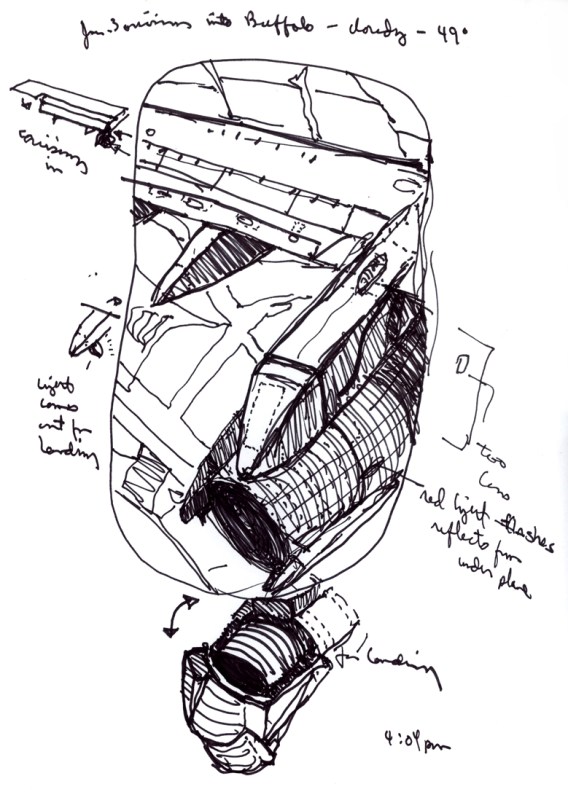 Jan. 3 arriving into Buffalo - cloudy - 49°
cruising
in
light
comes
out for
landing
too
red light flashes
reflects from
under plane
for landing
4:04 pm